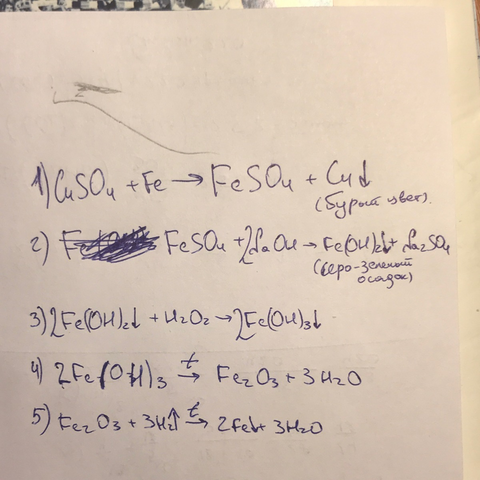 1) CuSO₄ + Fe → FeSO₄ + Cu↓
(бурый цвет).
2) FeSO₄ + 2NaOH → Fe(OH)₂↓ + Na₂SO₄
(серо-зеленый
осадок)
3) 2Fe(OH)₂↓ + H₂O₂ → 2Fe(OH)₃↓
4) 2Fe(OH)₃ t→ Fe₂O₃ + 3H₂O
5) Fe₂O₃ + 3H₂↑ t→ 2Fe↓ + 3H₂O